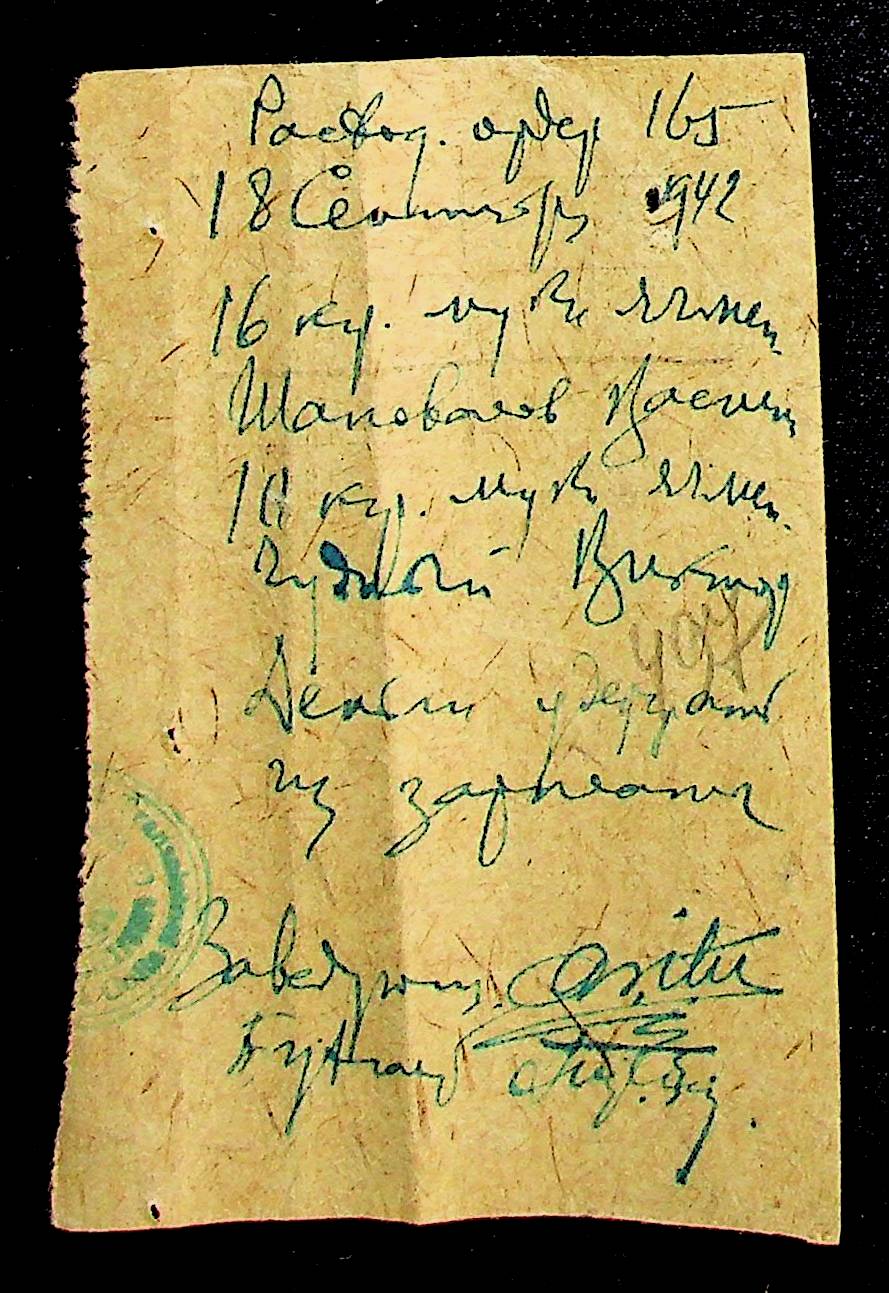 Расход. ордер 165
18 Сентябр 1942
16 кгр. мук ячмен
Шаповалов Васили
10 кгр. мук ячмен.
Чудный Виктор
497
Деньги удержать
из зарплаты
Заведующ.
Бухгалт